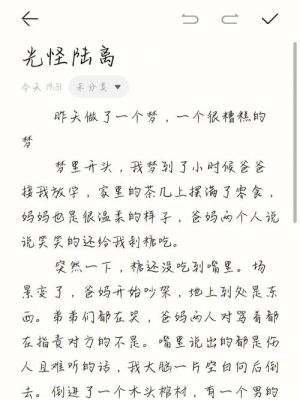 光怪陆离
今天 19:31 未分类
昨天做了一个梦，一个很糟糕的
梦
梦里开头，我梦到了小时候爸爸
接我放学，家里的茶几上摆满了零食，
妈妈也是很温柔的样子，爸妈两个人说
说笑笑的还给我剥糖吃。
突然一下，糖还没吃到嘴里。场
景变了，爸妈开始吵架，地上到处是东
西。弟弟们都在哭，爸妈两人对骂着都
在指责对方的不是。嘴里说出的都是伤
人且难听的话，我大脑一片空白向后倒
去。倒进了一个木头棺材，有一个男的